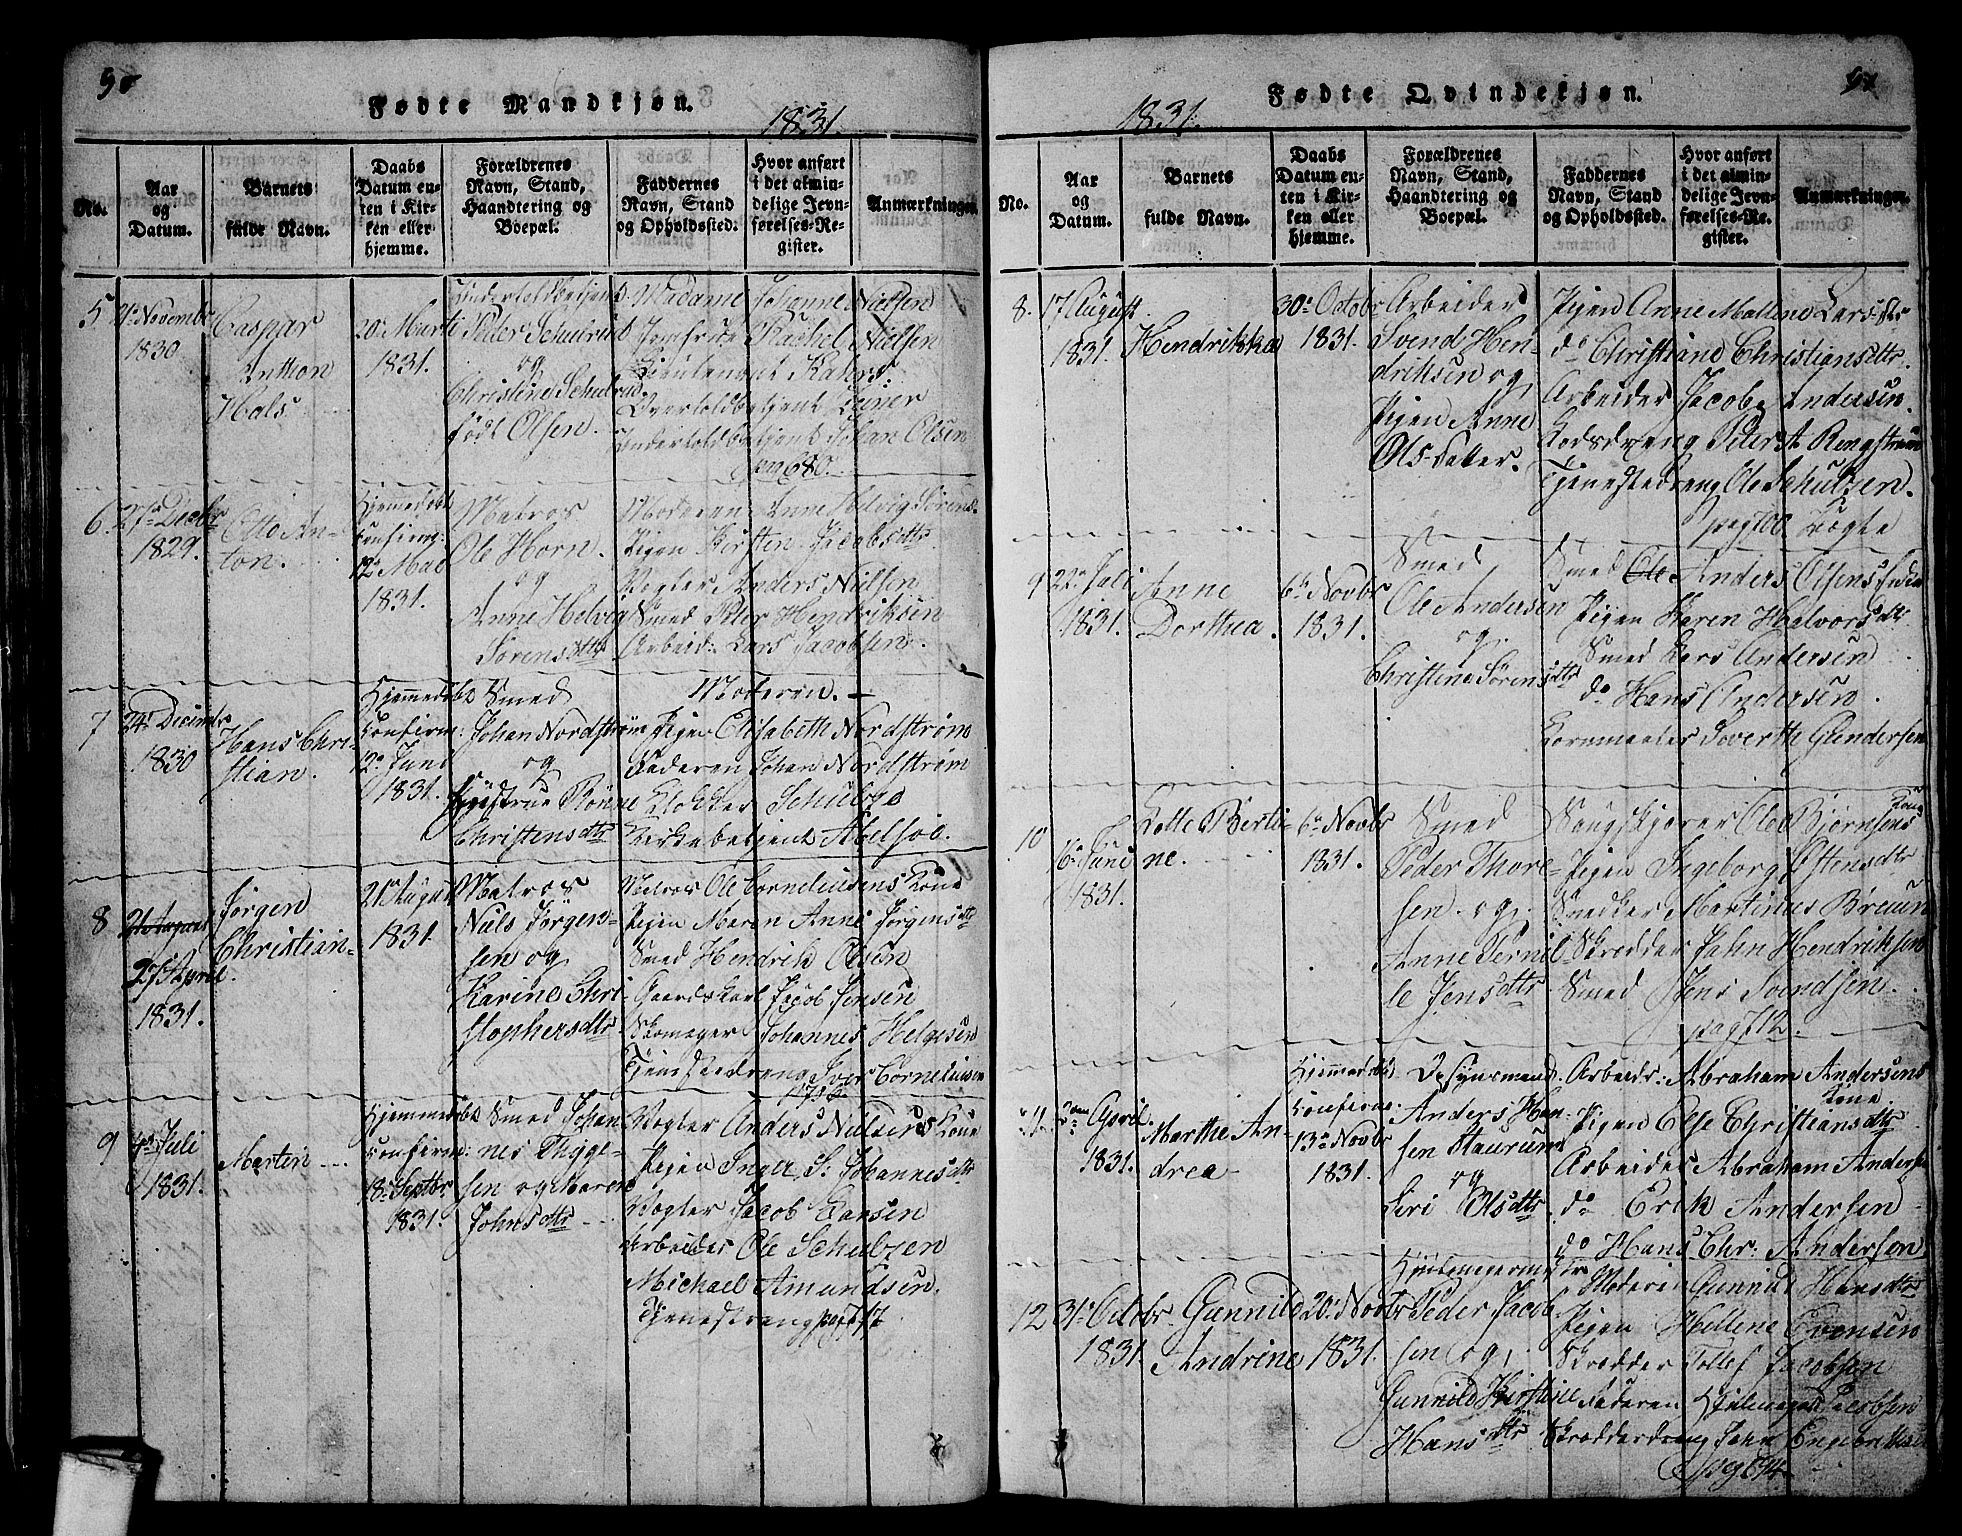 50
Fødte Mandkjøn.
1831.
No.
Aar
og
Datum.
Barnets
fulde Navn.
Daabs
Datum en-
ten i Kir-
ken eller
hjemme.
Forældrenes
Navn, Stand,
Haandtering og
Boepæl.
Faddernes
Navn, Stand
og Opholdssted.
Hvor anført
i det almin-
delige Jevn-
førelses-Re-
gister.
Anmærkninger.
5
21de Novembr
1830
Caspar
Anthon
Hals
20de Marti
1831.
Undertoldbetjent
Peder Schulrud
og
Christine Schulrud
født Olsen.
Madame Johanne Nielsen
Jomfrue Rachel Nielsen
Lieutenant Rahrs
Overtoldbetjent Leiner
Undertoldbetjent Johan Olsen
pag 680.
6.
27de Decbr
1829.
Otto An-
ton.
Hjemmedøbt
Confirm:
12te Mai
1831.
Matros
Ole Horn.
og
Anne Helvig
Sørensdtr
Moderen Anne Helvig Sørens.
Pigen Kirsten Jacobsdtr
Vegter Anders Nielsen
Smed Peter Hendriksen
Arbeid: Lars Jacobsen.
7
24de Decembr
1830
Hans Chri-
stian.
Hjemmedøbt
Confirm:
12te Juni
1831.
Smed
Johan Nordstrøm
og
Jgfr. Rønne
Christensdtr
Moderen. —
Pigen Elisabeth Nordstrøm
Faderen Johan Nordstrøm
Klokker Schubye
Kirkebetjent Abelsøe.
8
27de April
1831.
Jørgen
Christian-
21de August
1831.
Matros
Niels Jørgen-
sen og
Karine Chri-
stophersdtr
Matros Ole Corneliusens Kone
Pigen Maren Anne Jørgensdtr
Smed Hendrik Olsen
Gaardskarl Jacob Jensen
Skomager Johannes Helgesen
Tjenestedreng Iver Corneliusen
9
4de Juli
1831.
Martin
Hjemmedøbt
Confirm:
18de Septbr
1831.
Smed Johan-
nes Thyge-
sen og Maren
Johnsdtr
Vegter Anders Nielsens Kone
Pigen Inger S: Johannesdtr
Vegter Jacob Hansen
Arbeider Ole Schulzen
Michael Amundsen.
Tjenestdreng
1831.
Fødte Qvindekjøn.
51
No.
Aar
og
Datum.
Barnets
fulde Navn.
Daabs
Datum en-
ten i Kir-
ken eller
hjemme.
Forældrenes
Navn, Stand,
Haandtering og
Boepæl.
Faddernes
Navn, Stand
og Opholdssted.
Hvor anført
i det almin-
delige Jevn-
førelses-Re-
gister.
Anmærkninger.
8.
17 August
1831.
Hendrikka
30te Octobr
1831.
Arbeider
Svend Hen-
driksen og
Pigen Anne
Ols-datter.
Pigen Anne Mallene Lars-dtr
do Christiane Christiansdtr.
Arbeider Jacob Andersen.
Kadsdreng Peter A Rengstrøm
Tjenestedreng Ole Schulzen.
pag 700.
9
22de Juli
1831.
Anne
Dorthea.
6te Novbr
1831.
Smed
Ole Andersen
og
Christine Sørensdtr
Smed Anders Olsens Enke
Pigen Karen Halvorsdtr
Smed Lars Andersen
do Hans Andersen.
Kornmaaler Soverth Gundersen
10
6te Juni
1831.
Lotte Berti-
ne.
6te Novbr
1831.
Smed
Peder Thore-
sen. og
Anne Pernil-
le Jensdtr
Saugskjærer Ole Bjørnsens Kone
Pigen Ingeborg Ostensdtr
Snedker Martinus Bruun
Skrædder John Hendriksen
Smed Jens Svendsen.
pag 712.
11.
April
1831.
Marthe An-
drea
Hjemmedøbt
Confirm:
13de Novbr
1831.
Anders Han-
sen Staurum
og
Siri Olsdtr
Arbeidr: Abraham Andersens
Kone
Pigen Else Christiansdtr
Arbeider Abraham Anders
do Erik Andersen
do Hans Chr: Andersen
12
31te Octobr
1831.
Gunnild
Andrine
20de Novbr
1831.
Peder Jacob-
sen og
Gunnild Kirstine
Hansdtr
Moderen Gunnild Hansdtr
Pigen Hellene Evensen
Skrædder Tollef Jacobsen
Faderen Jacobsen
Skrædderdreng John Engebretsen